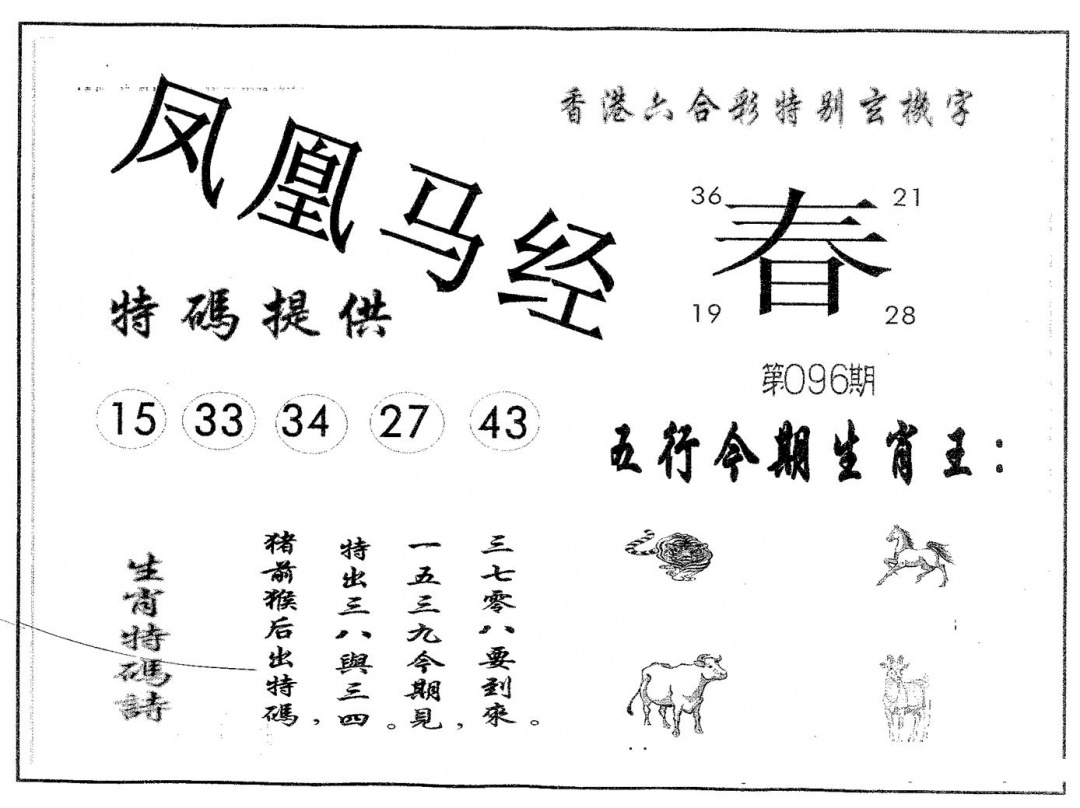 凤凰马经
香港六合彩特别玄機字
36 21
春
19 28
特碼提供
第096期
15 33 34 27 43
五行今期生肖王：
生肖特碼詩
猪前猴后出特碼，
特出三八與三四。
一五三九今期見，
三七零八要到來。